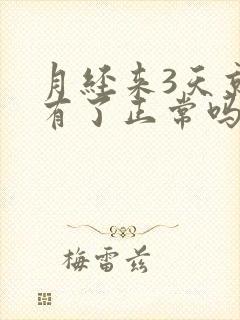 月经来3天
有了正常吗
梅雷兹